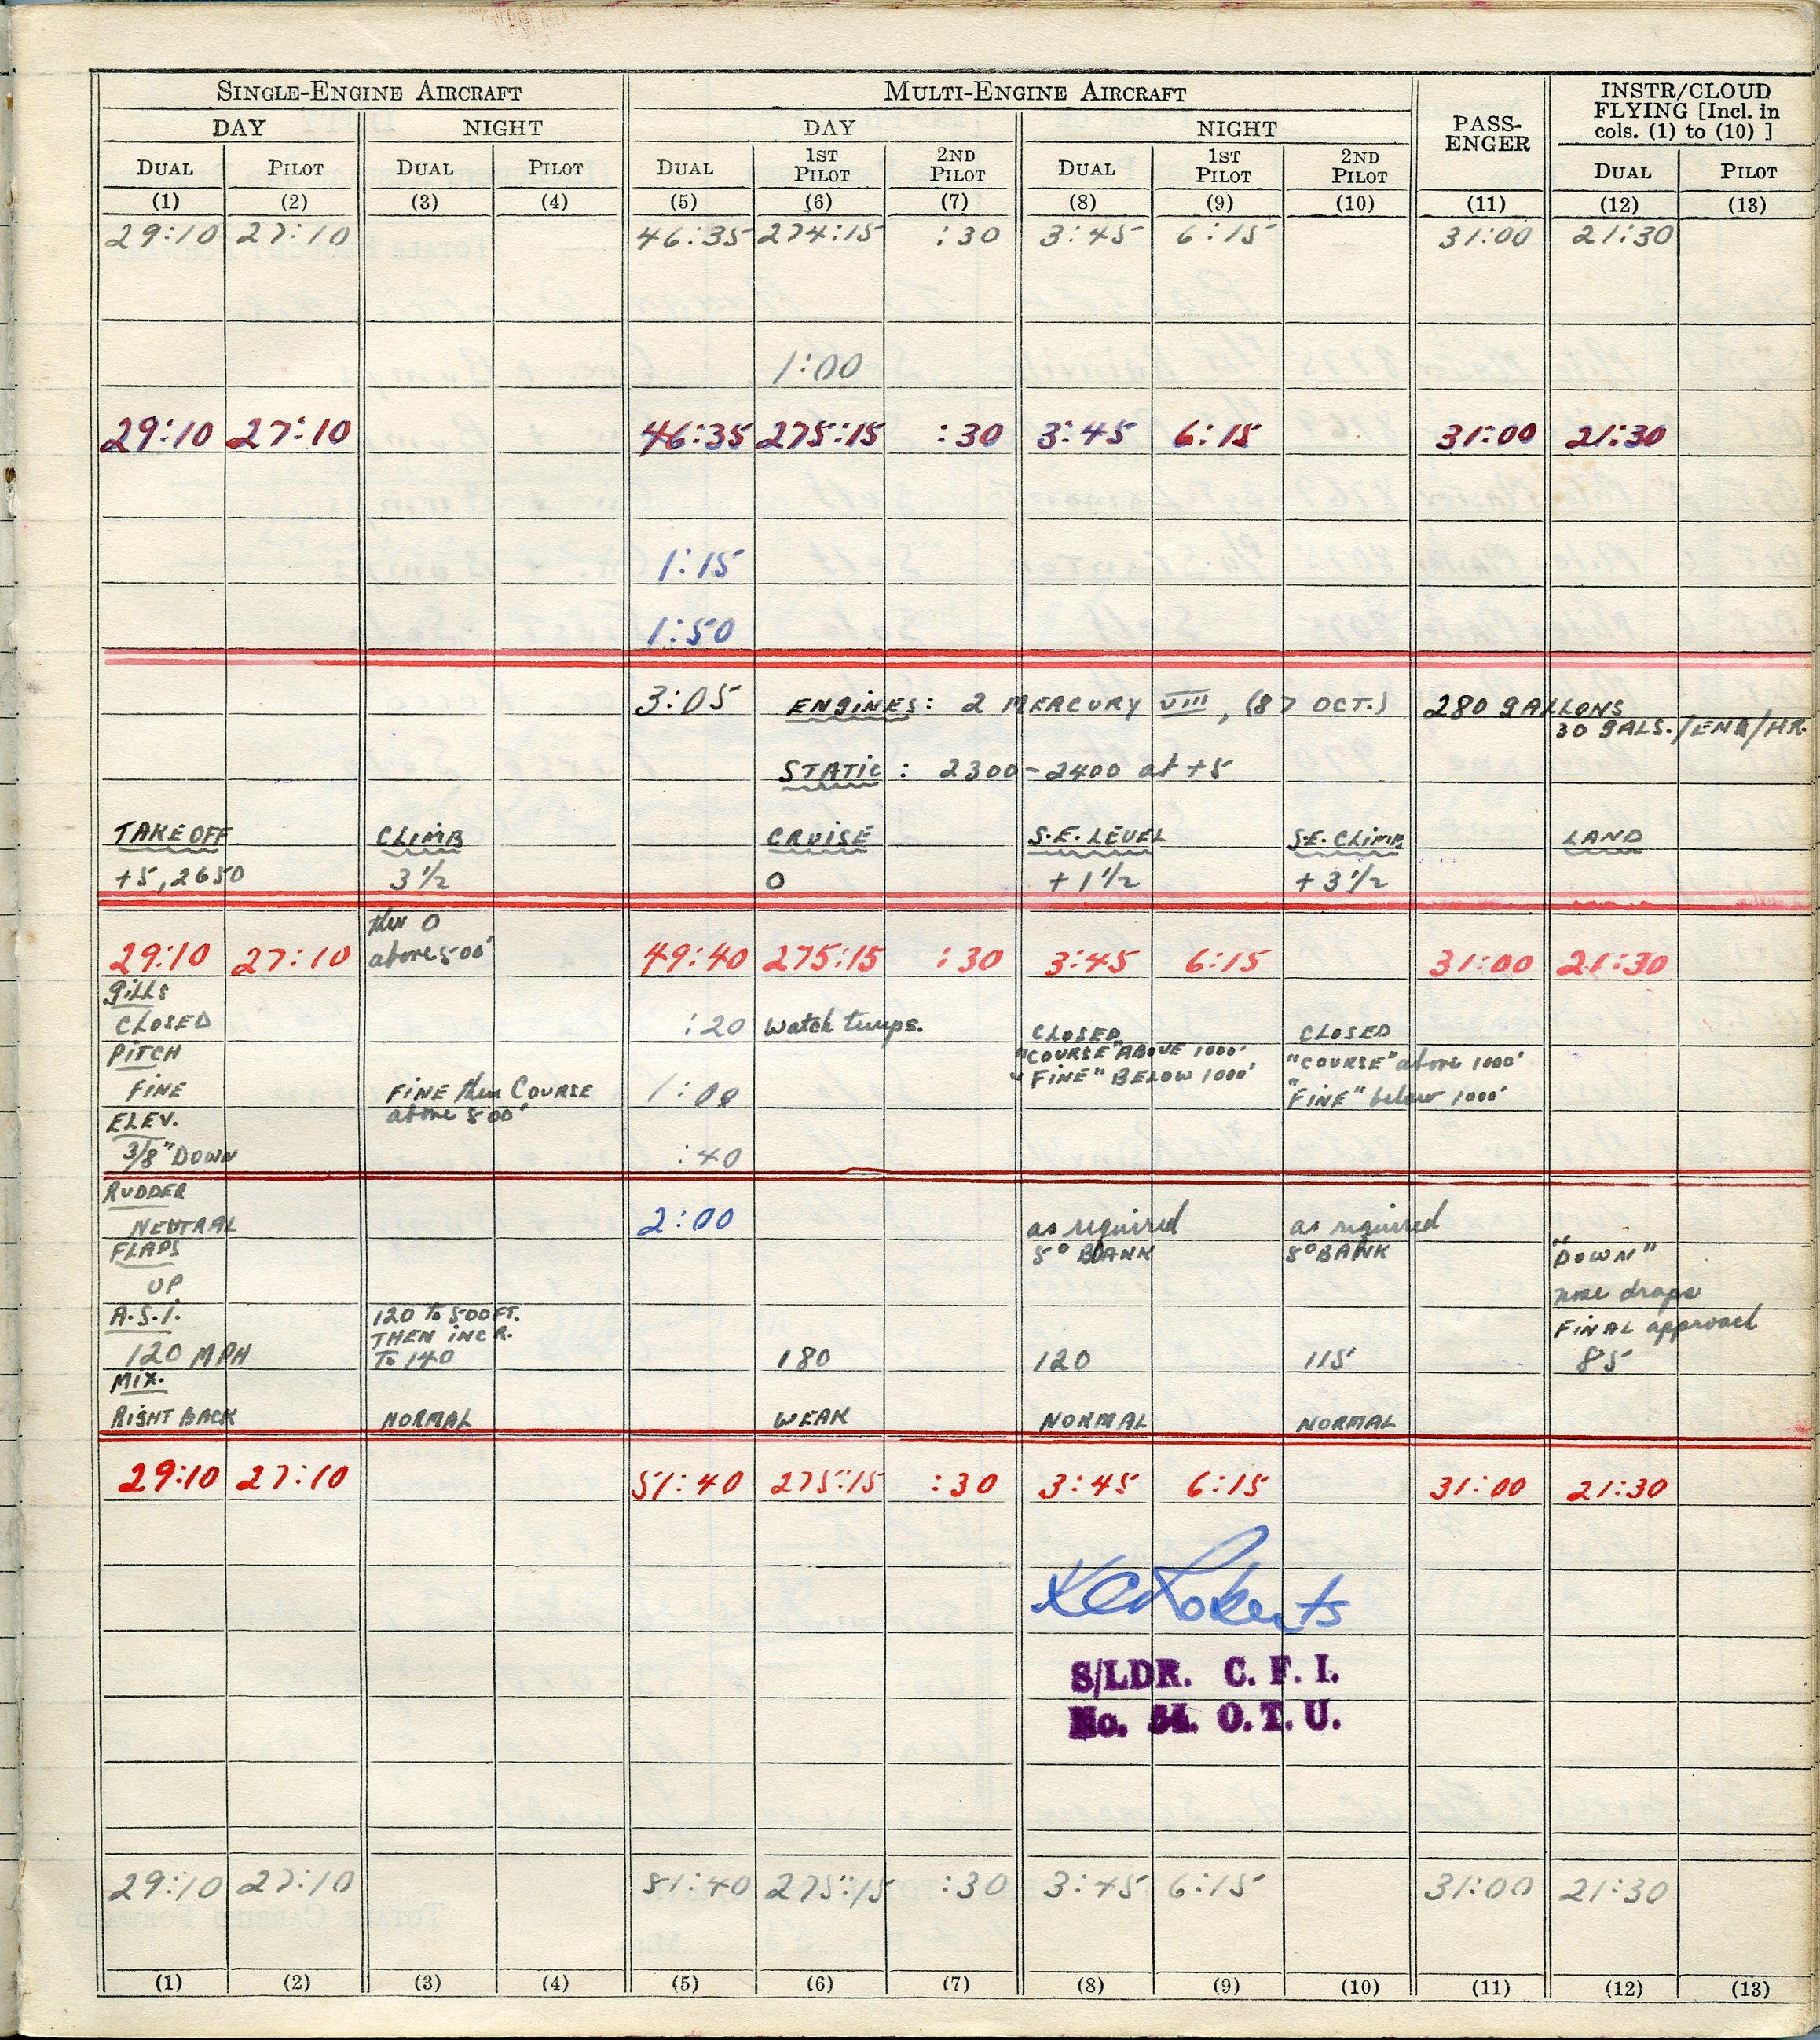 SINGLE-ENGINE AIRCRAFT MULTI-ENGINE AIRCRAFT PASS-ENGER INSTR/CLOUD FLYING [Incl. in cols. (1) to (10) ]
DAY NIGHT DAY NIGHT
DUAL PILOT DUAL PILOT DUAL 1ST PILOT 2ND PILOT DUAL 1ST PILOT 2ND PILOT DUAL PILOT
(1) (2) (3) (4) (5) (6) (7) (8) (9) (10) (11) (12) (13)
29:10 27:10 46:35 274:15 :30 3:45 6:15 31:00 21:30
1:00
29:10 27:10 46:35 275:15 :30 3:45 6:15 31:00 21:30
1:15
1:50
3:05 ENGINES: 2 MERCURY VIII, (87 OCT.) 280 GALLONS
30 GALS./ENG/HR.
STATIC: 2300-2400 at +5
TAKE OFF CLIMB CRUISE S.E. LEVEL S.E. CLIMB LAND
+5, 2650 3½ 0 +1½ +3½
then 0
above 500'
29:10 27:10 49:40 275:15 :30 3:45 6:15 31:00 21:30
GILLS
CLOSED :20 Watch temps. CLOSED CLOSED
PITCH "COURSE" ABOVE 1000' "COURSE" above 1000'
FINE FINE then COURSE 1:00 "FINE" BELOW 1000' "FINE" below 1000'
ELEV. above 500'
3/8" DOWN :40
RUDDER
NEUTRAL 2:00 as required as required
FLAPS 5° BANK 5° BANK "DOWN"
UP nose drops
A.S.I. 120 to 500 FT. FINAL approach
THEN INCR.
120 MPH To 140 180 120 115 85
MIX.
RIGHT BACK NORMAL WEAK NORMAL NORMAL
29:10 27:10 51:40 275:15 :30 3:45 6:15 31:00 21:30
KC Roberts
S/LDR. C. F. I.
No. 54. O. T. U.
29:10 27:10 51:40 275:15 :30 3:45 6:15 31:00 21:30
(1) (2) (3) (4) (5) (6) (7) (8) (9) (10) (11) (12) (13)